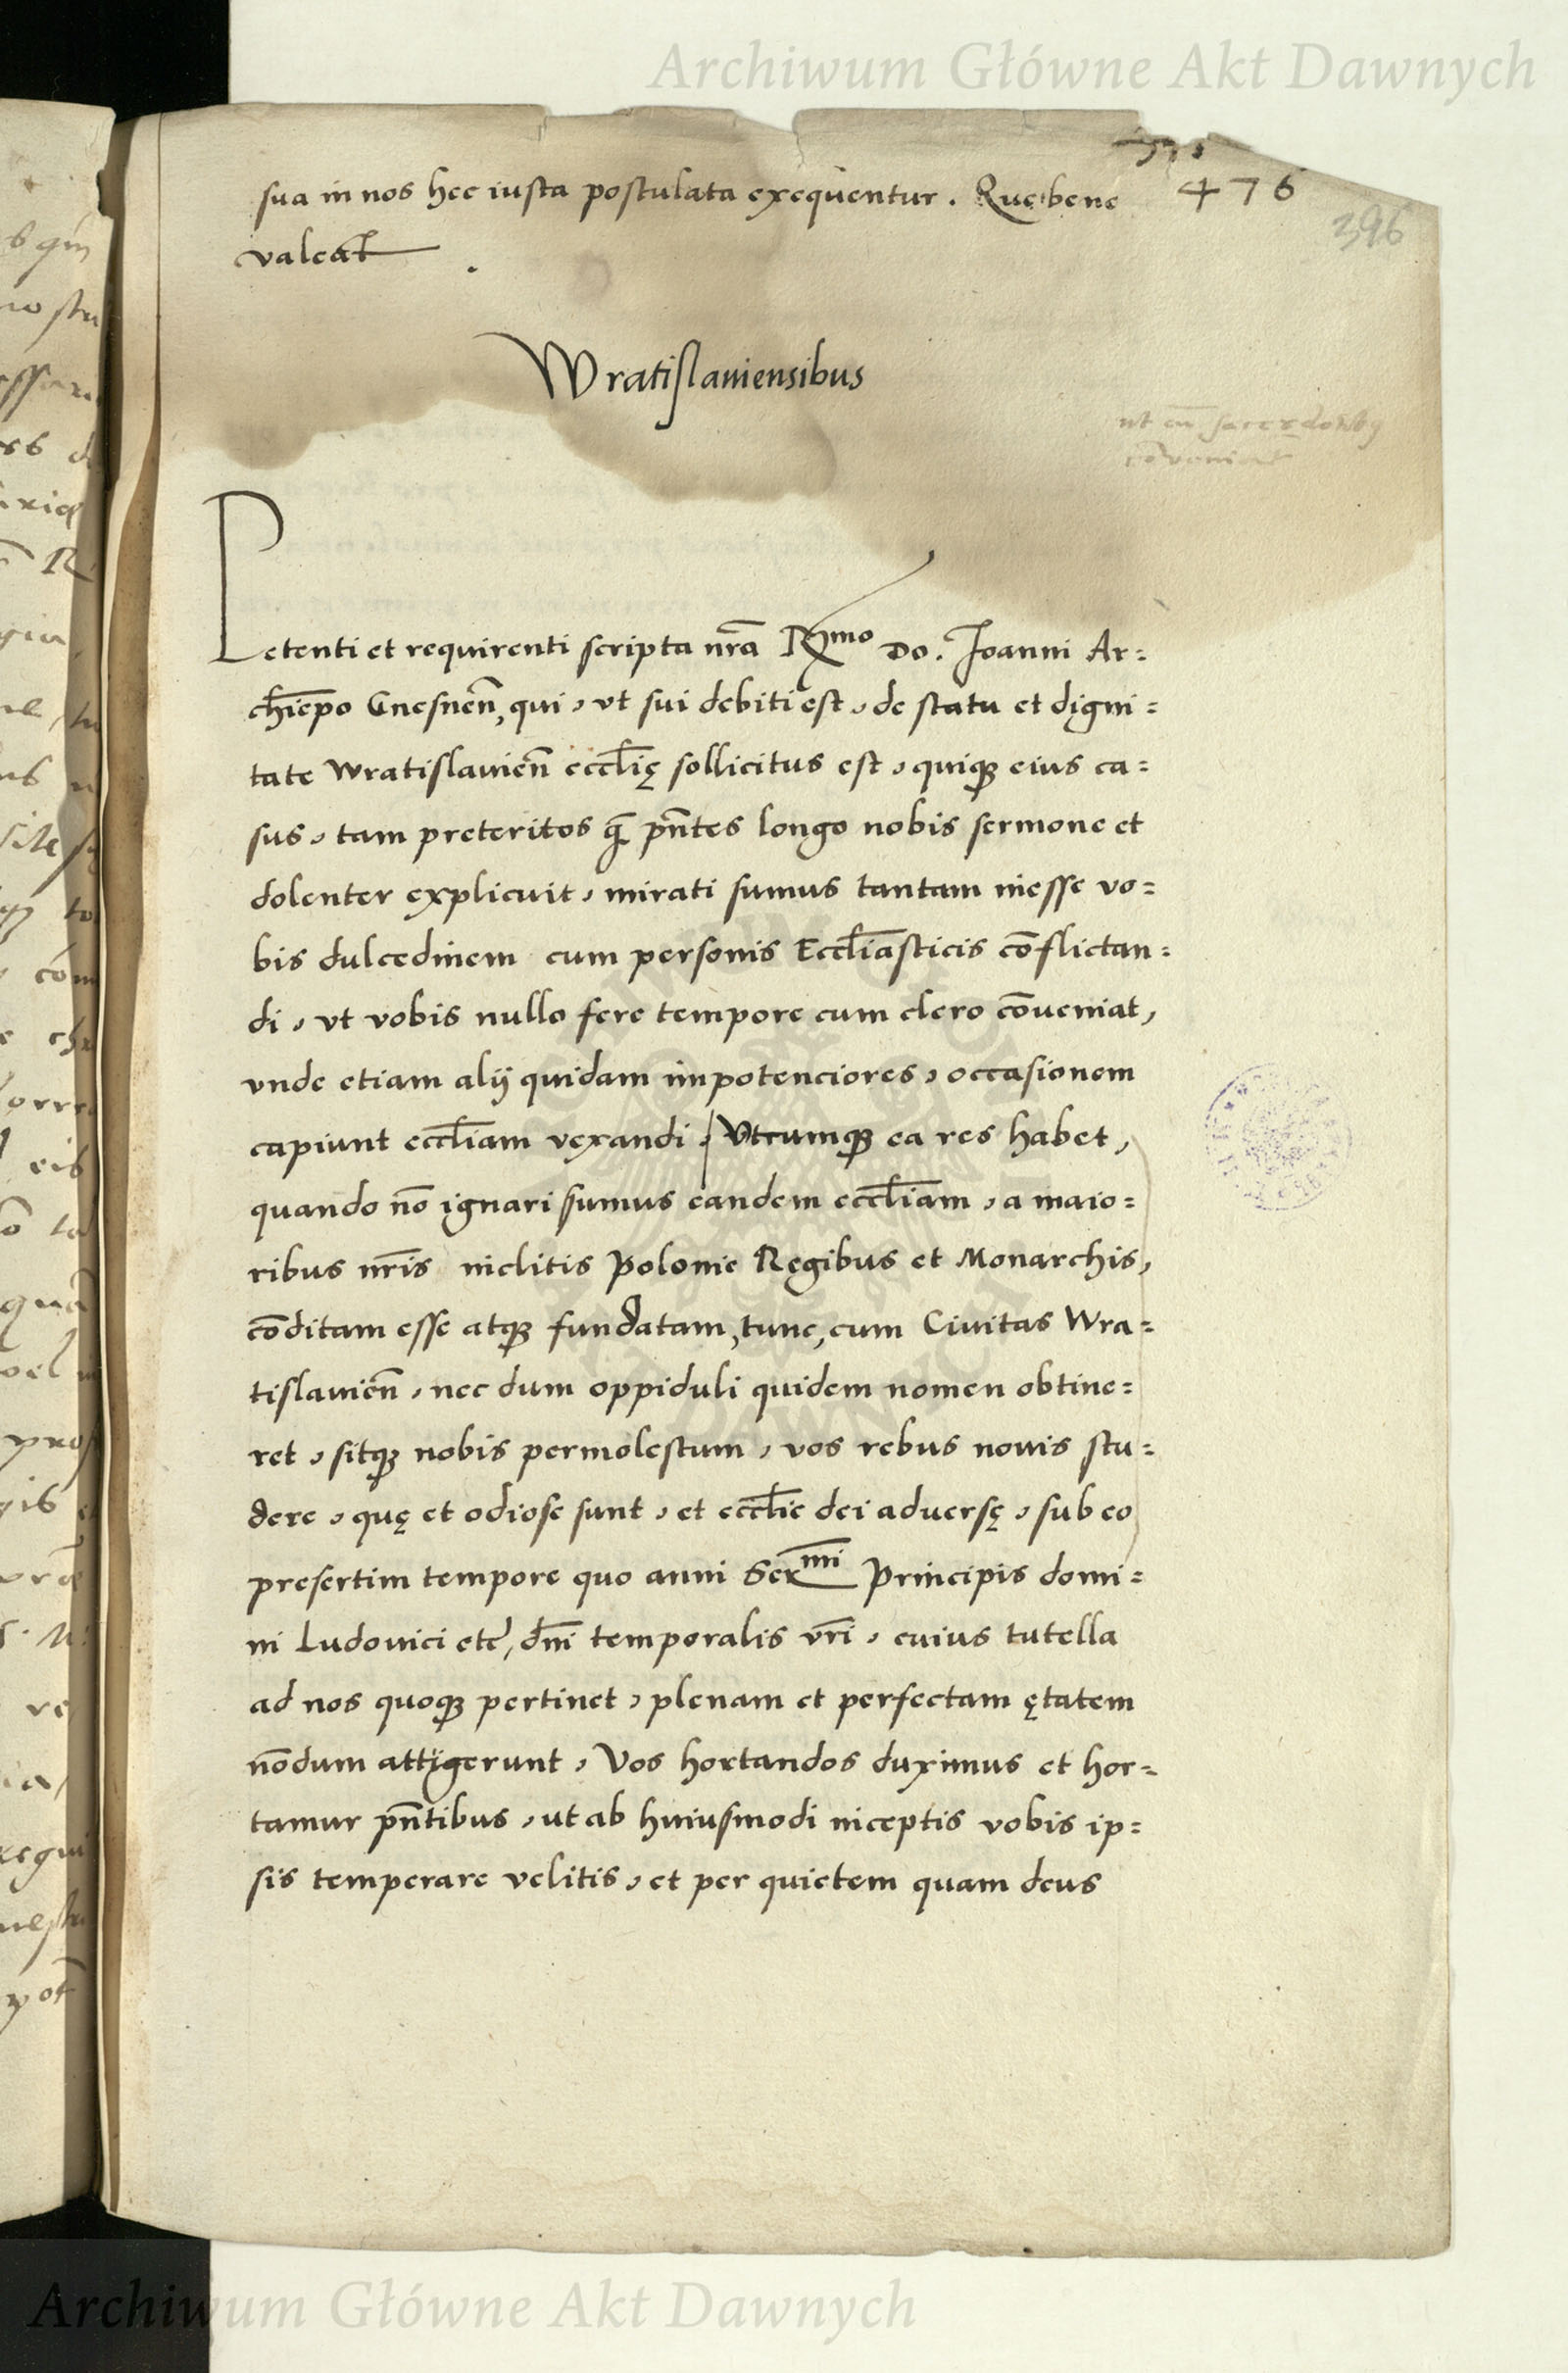 Archiwum Główne Akt Dawnych
476
396
sua in nos hec iusta postulata exequentur. Que bene
valeat.
Wratislauiensibus
ut cū sacerdotibꝫ
cōueniat
Petenti et requirenti scripta nr̄a Rmo Do. Joanni Ar=
chīepo Gnesnen̄, qui, vt sui debiti est, de statu et digni=
tate Wratislauien̄ eccl̄ię sollicitus est, quiqꝫ eius ca=
sus, tam preteritos q̄ pn̄tes longo nobis sermone et
dolenter explicuit, mirati sumus tantam inesse vo=
bis dulcedinem cum personis Eccl̄iasticis cōflictan=
di, vt vobis nullo fere tempore cum clero cōueniat,
vnde etiam alij quidam impotenciores, occasionem
capiunt eccl̄iam vexandi, Vtrumqꝫ ea res habet,
quando nō ignari sumus eandem eccl̄iam, a maio=
ribus nr̄is inclitis Polonie Regibus et Monarchis,
cōditam esse atqꝫ fundatam, tunc, cum Ciuitas Wra=
tislauien̄, nec dum oppiduli quidem nomen obtine=
ret, sitqꝫ nobis permolestum, vos rebus nouis stu=
dere, quę et odiose sunt, et eccl̄ie dei aduersę, sub eo
presertim tempore quo anni Sermi Principis domi=
ni Ludouici etc̄, dn̄i temporalis vr̄i, cuius tutella
ad nos quoqꝫ pertinet, plenam et perfectam ętatem
nōdum attigerunt, Vos hortandos duximus et hor=
tamur pn̄tibus, ut ab huiusmodi inceptis vobis ip=
sis temperare velitis, et per quietem quam deus
Archiwum Główne Akt Dawnych